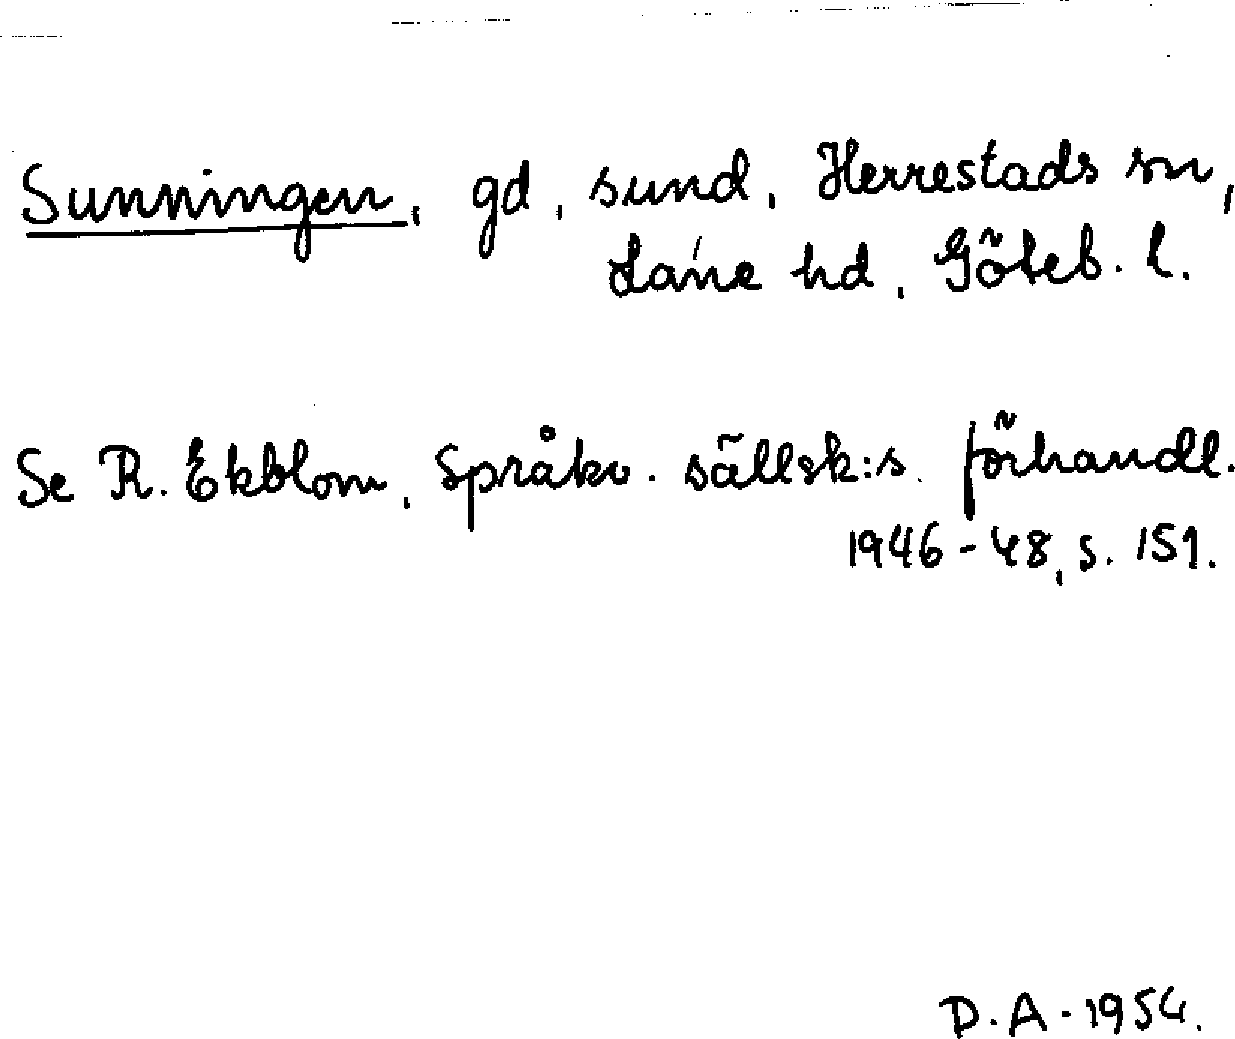 Sunningen, gd, sund, Herrestads sn,
Lane hd, Göteb. l.
Se R. Ekblom, Språkv. sällsk:s. förhandl.
1946-48, s. 151.
D.A. 1954.